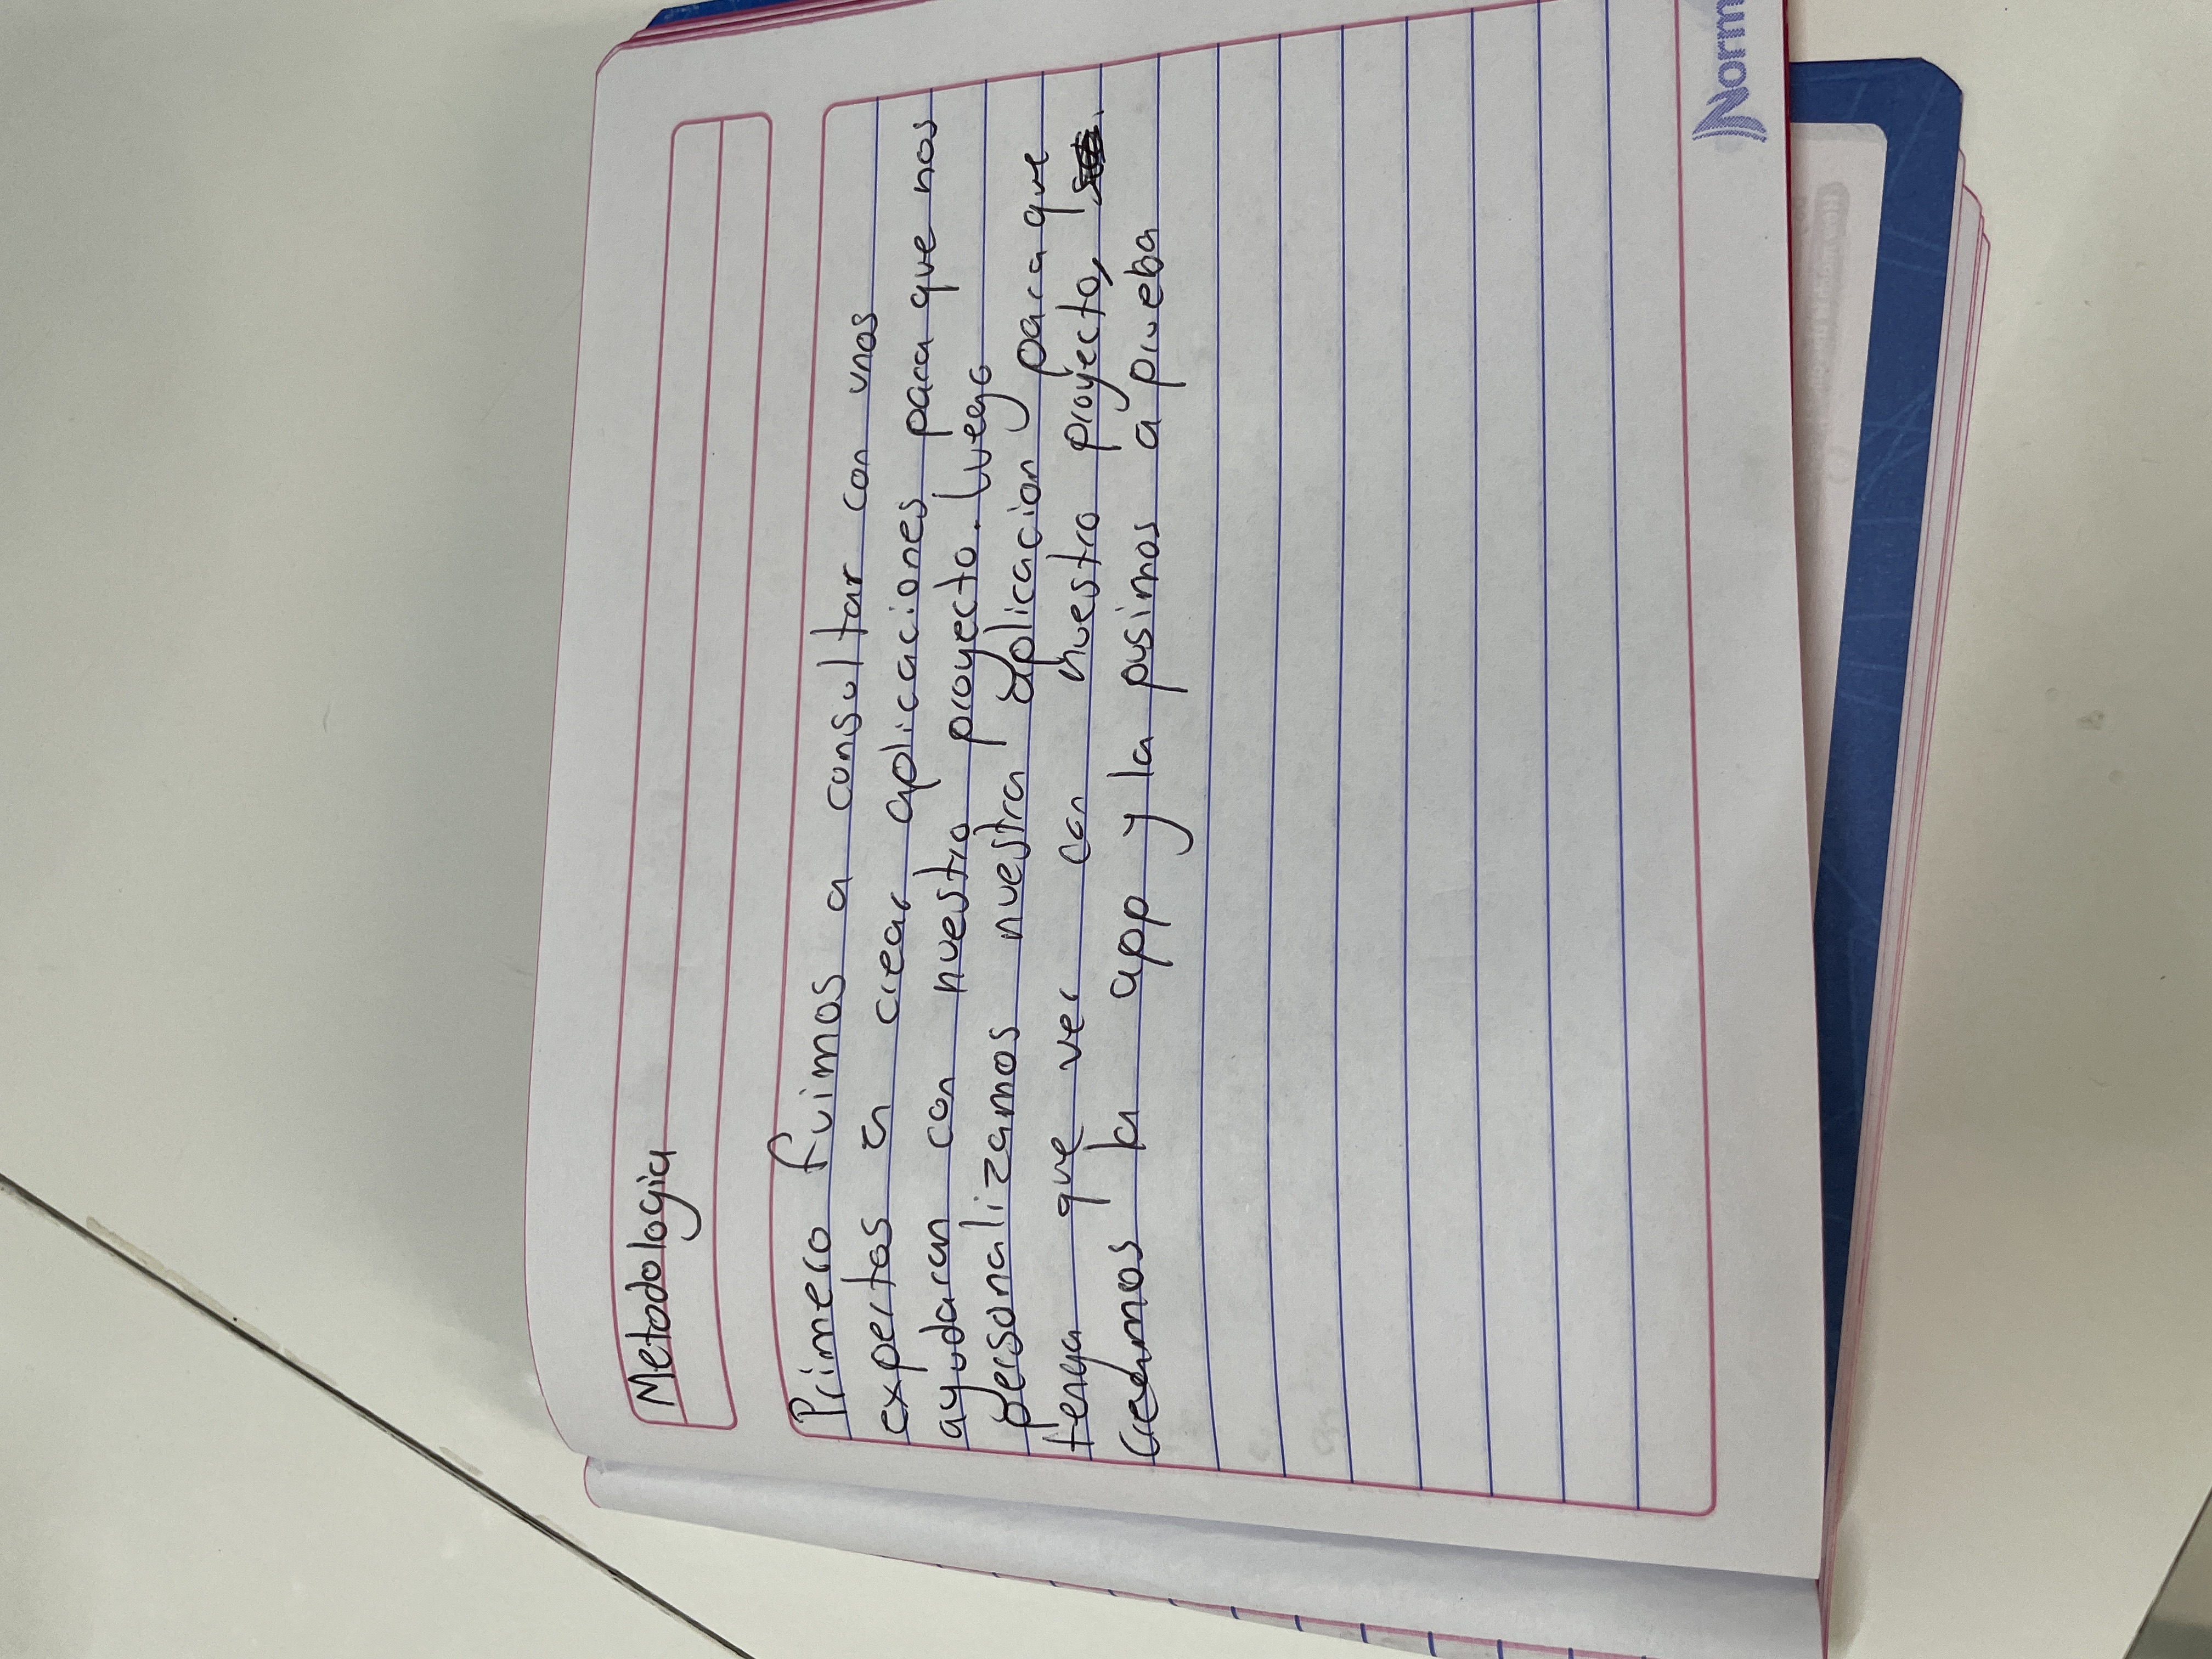 Metodologia
Primero fuimos a consultar con unos
expertos en crear aplicaciones para que nos
ayudaran con nuestro proyecto. Luego
personalizamos nuestra aplicacion para que
tenga que ver con nuestro proyecto,
Creamos la app y la pusimos a prueba
Norm